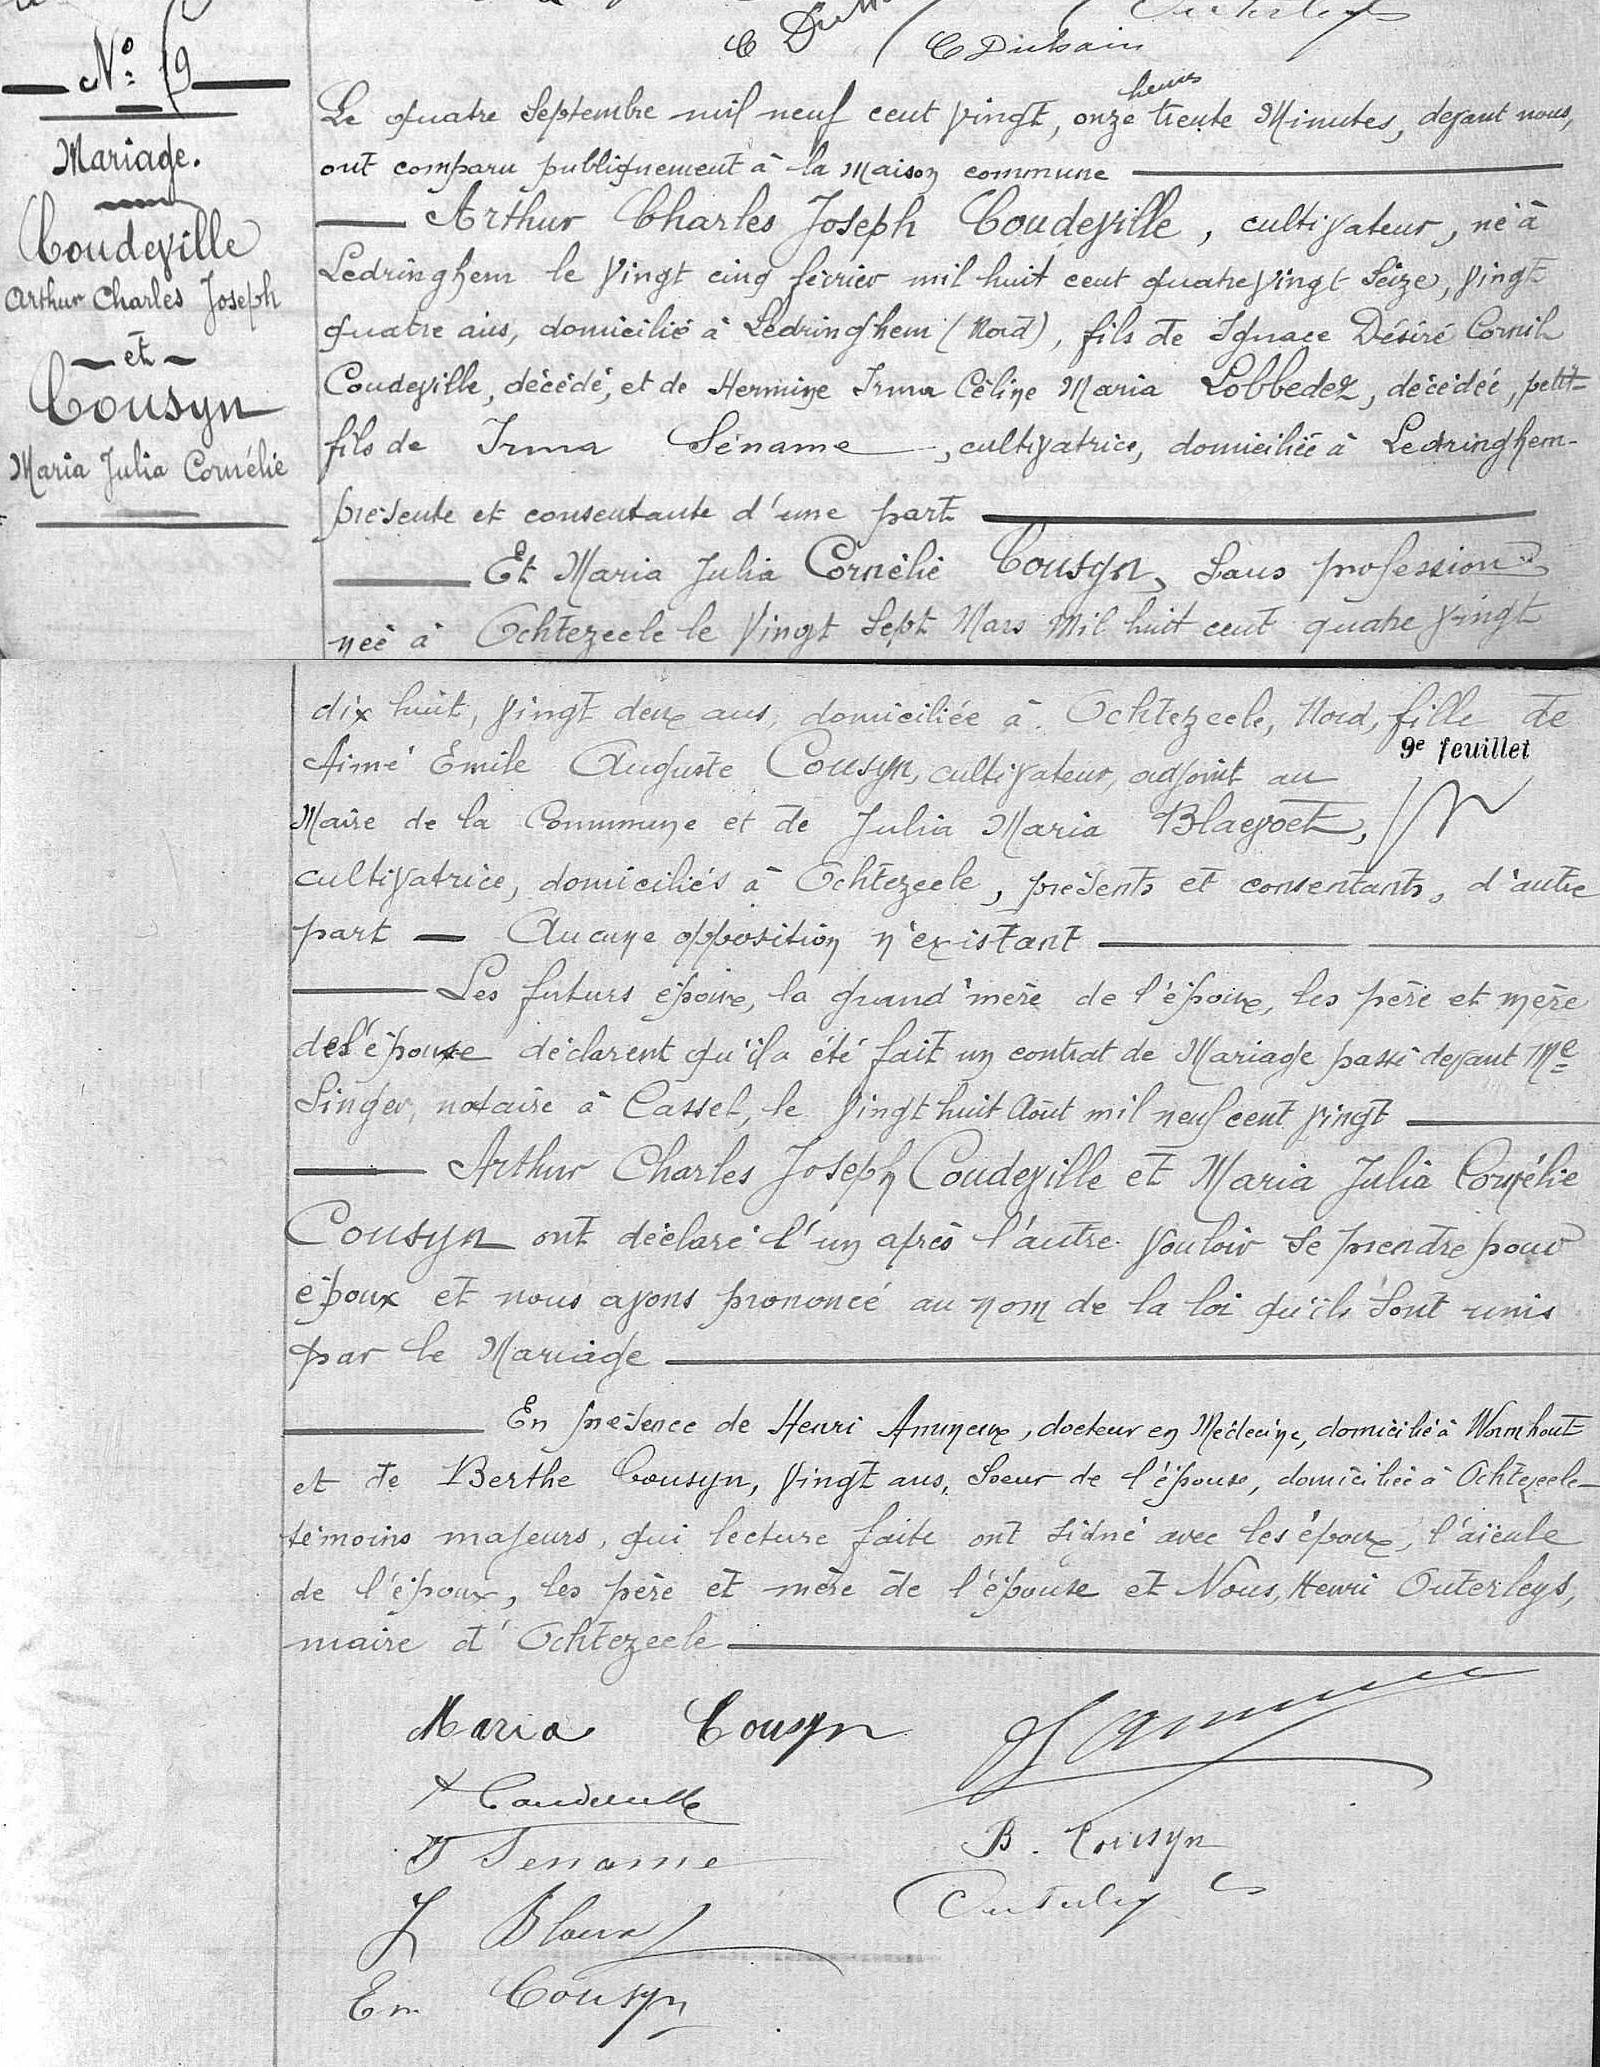 C Duhain
N° 9
Mariage.
Coudeville
Arthur Charles Joseph
et
Cousyn
Maria Julia Cornélie
Le quatre Septembre mil neuf cent vingt, onze heures trente Minutes, devant nous,
ont comparu publiquement à la Maison commune
Arthur Charles Joseph Coudeville, cultivateur, né à
Ledringhem le vingt cinq février mil huit cent quatre vingt Seize, vingt
quatre ans, domicilié à Ledringhem (Nord), fils de Ignace Désiré Cornil
Coudeville, décédé, et de Hermine Irma Céline Maria Lobbedez, décédée, petit-
fils de Irma Sename, cultivatrice, domiciliée à Ledringhem-
présente et consentante d'une part
Et Maria Julia Cornélie Cousyn, Sans profession
née à Ochtezeele le Vingt Sept Mars Mil huit cent quatre vingt
dix huit, vingt deux ans, domiciliée à Ochtezeele, Nord, fille de
9e feuillet
Aimé Emile Auguste Cousyn, cultivateur, adjoint au
Maire de la Commune et de Julia Maria Blaevoet,
cultivatrice, domiciliés à Ochtezeele, présents et consentants, d'autre
part — Aucune opposition n'existant
Les futurs époux, la grand'mère de l'époux, les père et mère
de l'épouse déclarent qu'il a été fait un contrat de Mariage passé devant Me
Singer, notaire à Cassel, le vingt huit Août mil neuf cent vingt
Arthur Charles Joseph Coudeville et Maria Julia Cornélie
Cousyn ont déclaré l'un après l'autre vouloir Se prendre pour
époux et nous avons prononcé au nom de la loi qu'ils Sont unis
par le Mariage
En présence de Henri Ammeux, docteur en Médecine, domicilié à Wormhout
et de Berthe Cousyn, vingt ans, Soeur de l'épouse, domiciliée à Ochtezeele-
témoins majeurs, qui lecture faite ont signé avec les époux, l'aïeule
de l'époux, les père et mère de l'épouse et Nous, Henri Outerleys,
maire d'Ochtezeele
Maria Cousyn
A Coudeville
I Sename
B. Cousyn
J Blaevoet
Outerleys
Em Cousyn